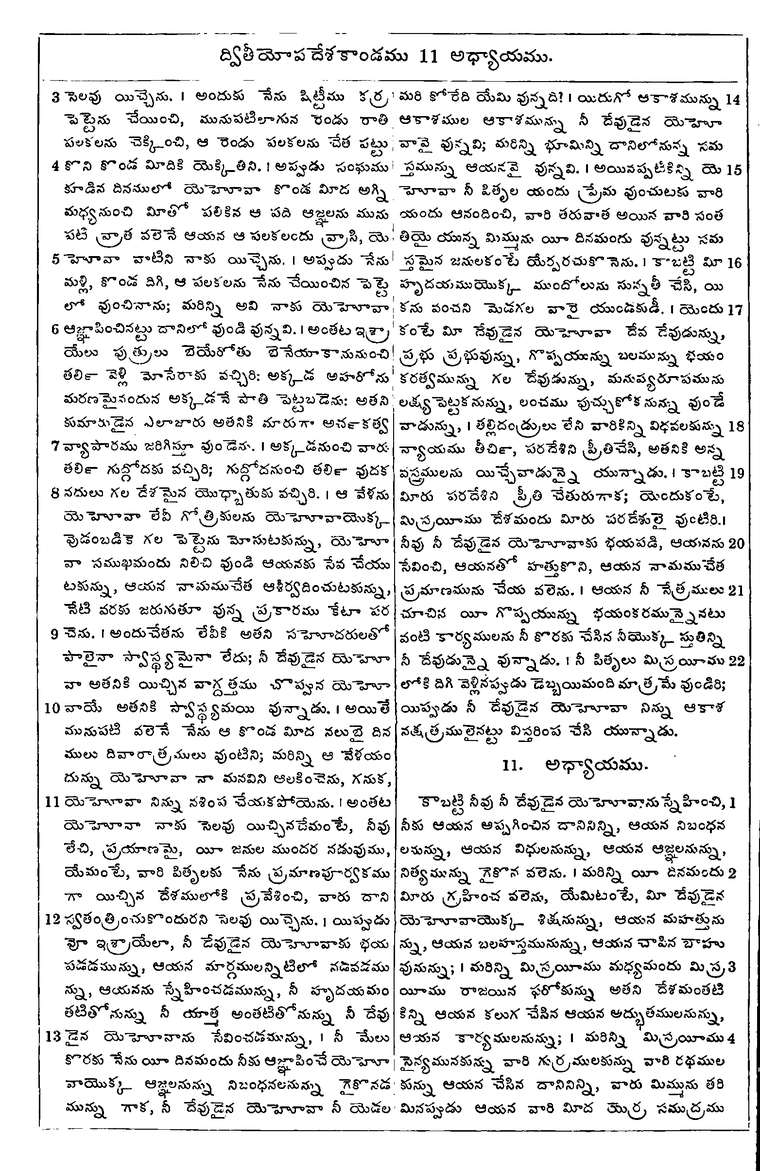 ద్వితీయోపదేశకాండము 11 అధ్యాయము.
3 సెలవు యిచ్చెను. । అందుకు నేను షిట్టీము కర్ర
పెట్టెను చేయించి, మునుపటిలాగున రెండు రాతి
పలకలను చెక్కించి, ఆ రెండు పలకలను చేత పట్టు
4 కొని కొండ మీదికి యెక్కితిని. । అప్పుడు సంఘము
కూడిన దినములో యెహోవా కొండ మీద అగ్ని
మధ్యనుంచి మీతో పలికిన ఆ పది ఆజ్ఞలను మును
పటి వ్రాత వలెనే ఆయన ఆ పలకలందు వ్రాసి, యె
5 హోవా వాటిని నాకు యిచ్చెను. । అప్పుడు నేను
మళ్లి, కొండ దిగి, ఆ పలకలను నేను చేయించిన పెట్టె
లో వుంచినాను; మరిన్ని అవి నాకు యెహోవా
6 ఆజ్ఞాపించినట్టు దానిలో వుండి వున్నవి. । అంతట ఇశ్రా
యేలు పుత్రులు బెయేరోతు బెనేయాకానునుంచి
తలి౯ వెళ్లి మోసేరాకు వచ్చిరి: అక్కడ అహరోను
మరణమైనందున అక్కడనే పాతి పెట్టబడెను: అతని
కుమారుడైన ఎలాజారు అతనికి మారుగా అచ౯కత్వ
7 వ్యాపారము జరిగిస్తూ వుండెను. । అక్కడనుంచి వారు
తలి౯ గుద్గోదకు వచ్చిరి; గుద్గోదనుంచి తలి౯ వుదక
8 నదులు గల దేశమైన యొధ్బాతుకు వచ్చిరి. । ఆ వేళను
యెహోవా లేవీ గోత్రికులను యెహోవాయొక్క
వుడంబడిక గల పెట్టెను మోసుటకున్ను, యెహో
వా సముఖమందు నిలిచి వుండి ఆయనకు సేవ చేయు
టకున్ను, ఆయన నామముచేత ఆశీర్వదించుటకున్ను,
నేటి వరకు జరుగుతూ వున్న ప్రకారము కేటా పర
9 చెను. । అందుచేతను లేవీకి అతని సహోదరులతో
పాలైనా స్వాస్థ్యమైనా లేదు; నీ దేవుడైన యెహో
వా అతనికి యిచ్చిన వాగ్దత్తము చొప్పున యెహో
10 వాయే అతనికి స్వాస్థ్యమయి వున్నాడు. । అయితే
మునుపటి వలెనే నేను ఆ కొండ మీద నలుబై దిన
ములు దివారాత్రములు వుంటిని; మరిన్ని ఆ వేళయం
దున్ను యెహోవా నా మనవిని ఆలకించెను, గనుక,
11 యెహోవా నిన్ను నశింప చేయకపోయెను. । అంతట
యెహోవా నాకు సెలవు యిచ్చినదేమంటే, నీవు
లేచి, ప్రయాణమై, యీ జనుల ముందర నడువుము,
యేమంటే, వారి పితృలకు నేను ప్రమాణపూర్వకము
గా యిచ్చిన దేశములోకి ప్రవేశించి, వారు దాని
12 స్వతంత్రించుకొందురని సెలవు యిచ్చెను. । యిప్పుడు
వో ఇశ్రాయేలా, నీ దేవుడైన యెహోవాకు భయ
పడడమున్ను, ఆయన మార్గములన్నిటిలో నడివడము
న్ను, ఆయనను స్నేహించడమున్ను, నీ హృదయమం
తటితోనున్ను నీ యాత్మ అంతటితోనున్ను నీ దేవు
13 డైన యెహోవాను సేవించడమున్ను, । నీ మేలు
కొరకు నేను యీ దినమందు నీకు ఆజ్ఞాపించే యెహో
వాయొక్క ఆజ్ఞలనున్ను నిబంధనలనున్ను గైకొనడ
మున్ను గాక, నీ దేవుడైన యెహోవా నీ యెడల
మరి కోరేది యేమి వున్నది? । యిదుగో ఆకాశమున్ను 14
ఆకాశముల ఆకాశమున్ను నీ దేవుడైన యెహో
వావై వున్నవి; మరిన్ని భూమిన్ని దానిలోనున్న సమ
స్తమున్ను ఆయనవై వున్నవి. । అయినప్పటికిన్ని యె 15
హోవా నీ పితృల యందు ప్రేమ వుంచుటకు వారి
యందు ఆనందించి, వారి తరువాత అయిన వారి సంత
తియై యున్న మిమ్మును యీ దినమందు వున్నట్టు సమ
స్తమైన జనులకంటే యేర్పరచుకొనెను. । కాబట్టి మీ 16
హృదయముయొక్క ముందోలును సున్నతీ చేసి, యి
కను వంచని మెడగల వారై యుండకుడీ. । యెందు 17
కంటే మీ దేవుడైన యెహోవా దేవ దేవుడున్ను,
ప్రభు ప్రభువున్ను, గొప్పయున్ను బలమున్ను భయం
కరత్వమున్ను గల దేవుడున్ను, మనుష్యరూపమును
లక్ష్యపెట్టకనున్ను, లంచము పుచ్చుకోకనున్ను వుండే
వాడున్ను, । తల్లిదండ్రులు లేని వారికిన్ని విధవలకున్ను 18
న్యాయము తీచి౯, పరదేశిని ప్రీతిచేసి, అతనికి అన్న
వస్త్రములను యిచ్చేవాడున్నై యున్నాడు. । కాబట్టి 19
మీరు పరదేశిని ప్రీతి చేతురుగాక; యెందుకంటే,
మిస్రయీము దేశమందు మీరు పరదేశులై వుంటిరి.।
నీవు నీ దేవుడైన యెహోవాకు భయపడి, ఆయనను 20
సేవించి, ఆయనతో హత్తుకొని, ఆయన నామముచేత
ప్రమాణమును చేయ వలెను. । ఆయన నీ నేత్రములు 21
చూచిన యీ గొప్పయున్ను భయంకరమున్నైనటు
వంటి కార్యములను నీ కొరకు చేసిన నీయొక్క స్తుతిన్ని
నీ దేవుడున్నై వున్నాడు. । నీ పితృలు మిస్రయీము 22
లోకి దిగి వెళ్లినప్పుడు డెబ్బయిమంది మాత్రమే వుండిరి;
యిప్పుడు నీ దేవుడైన యెహోవా నిన్ను ఆకాశ
నక్షత్రములైనట్టు విస్తరింప చేసి యున్నాడు.
11. అధ్యాయము.
కాబట్టి నీవు నీ దేవుడైన యెహోవాను స్నేహించి, 1
నీకు ఆయన అప్పగించిన దానినిన్ని, ఆయన నిబంధన
లనున్ను, ఆయన విధులనున్ను, ఆయన ఆజ్ఞలనున్ను,
నిత్యమున్ను గైకొన వలెను. । మరిన్ని యీ దినమందు 2
మీరు గ్రహించ వలెను, యేమిటంటే, మీ దేవుడైన
యెహోవాయొక్క శిక్షనున్ను, ఆయన మహత్తును
న్ను, ఆయన బలహస్తమునున్ను, ఆయన చాపిన బాహు
వునున్ను; । మరిన్ని మిస్రయీము మధ్యమందు మిస్ర 3
యీము రాజయిన ఫరోకున్ను అతని దేశమంతటి
కిన్ని ఆయన కలుగ చేసిన ఆయన అద్భుతములనున్ను,
ఆయన కార్యములనున్ను; । మరిన్ని మిస్రయీము 4
సైన్యమునకున్ను వారి గుర్రములకున్ను వారి రథముల
కున్ను ఆయన చేసిన దానినిన్ని, వారు మిమ్మును తరి
మినప్పుడు ఆయన వారి మీద యెర్ర సముద్రము